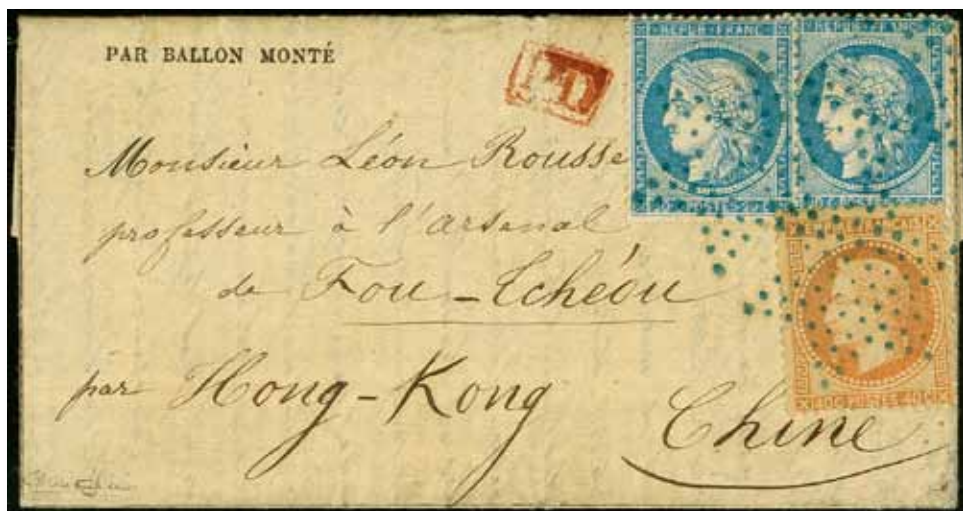 PAR BALLON MONTÉ
PD
REPUB·FRANC
REPUB·FRANC
Monsieur Léon Rousse
professeur à l'Arsenal
de Fou-Tchéou
40C POSTES 40C
par Hong-Kong
Chine